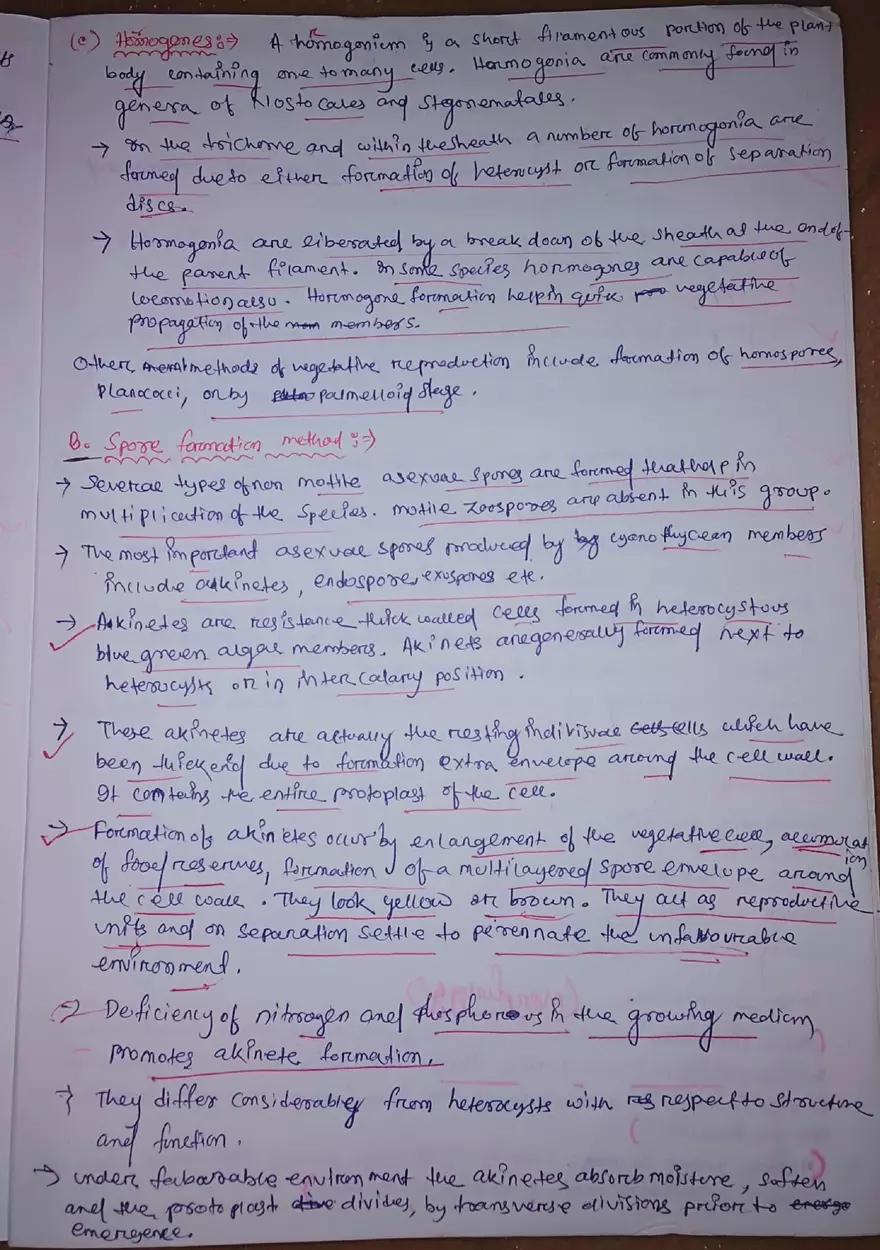 (c) Homogenes:→ A hormogonium is a short filamentous portion of the plant
body containing one to many cells. Hormogonia are commonly found in
genera of Nostocales and Stegonematales.
→ In the trichome and within the sheath a number of hormogonia are
formed due to either formation of heterocyst or formation of separation
discs.
→ Hormogonia are liberated by a break down of the sheath at the end of
the parent filament. In some species hormogones are capable of
locomotion also. Hormogone formation help in quik vegetative
propagation of the members.
Other methods of vegetative reproduction include formation of homospores,
Planococci, or by palmelloid stage.
B. Spore formation method:→
→ Several types of non motile asexual spores are formed that help in
multiplication of the species. motile zoospores are absent in this group.
→ The most important asexual spores produced by cyanophycean members
include akinetes, endospore, exospores etc.
→ Akinetes are resistance thick walled cells formed in heterocystous
blue green algae members. Akinets are generally formed next to
heterocysts or in intercalary position.
→ These akinetes are actually the resting indivisual cells which have
been thickend due to formation extra envelope around the cell wall.
It contains the entire protoplast of the cell.
→ Formation of akinetes occur by enlargement of the vegetative cell, accumulation
of food reserves, formation of a multilayered spore envelope around
the cell wall. They look yellow or brown. They act as reproductive
units and on separation settle to perennate the unfavourable
environment.
→ Deficiency of nitrogen and phosphoreous in the growing medium
promotes akinete formation.
→ They differ considerably from heterocysts with respect to structure
and function.
→ under fabourable environment the akinetes absorb moisture, soften
and the protoplast divides, by transverse divisions prior to
emergence.